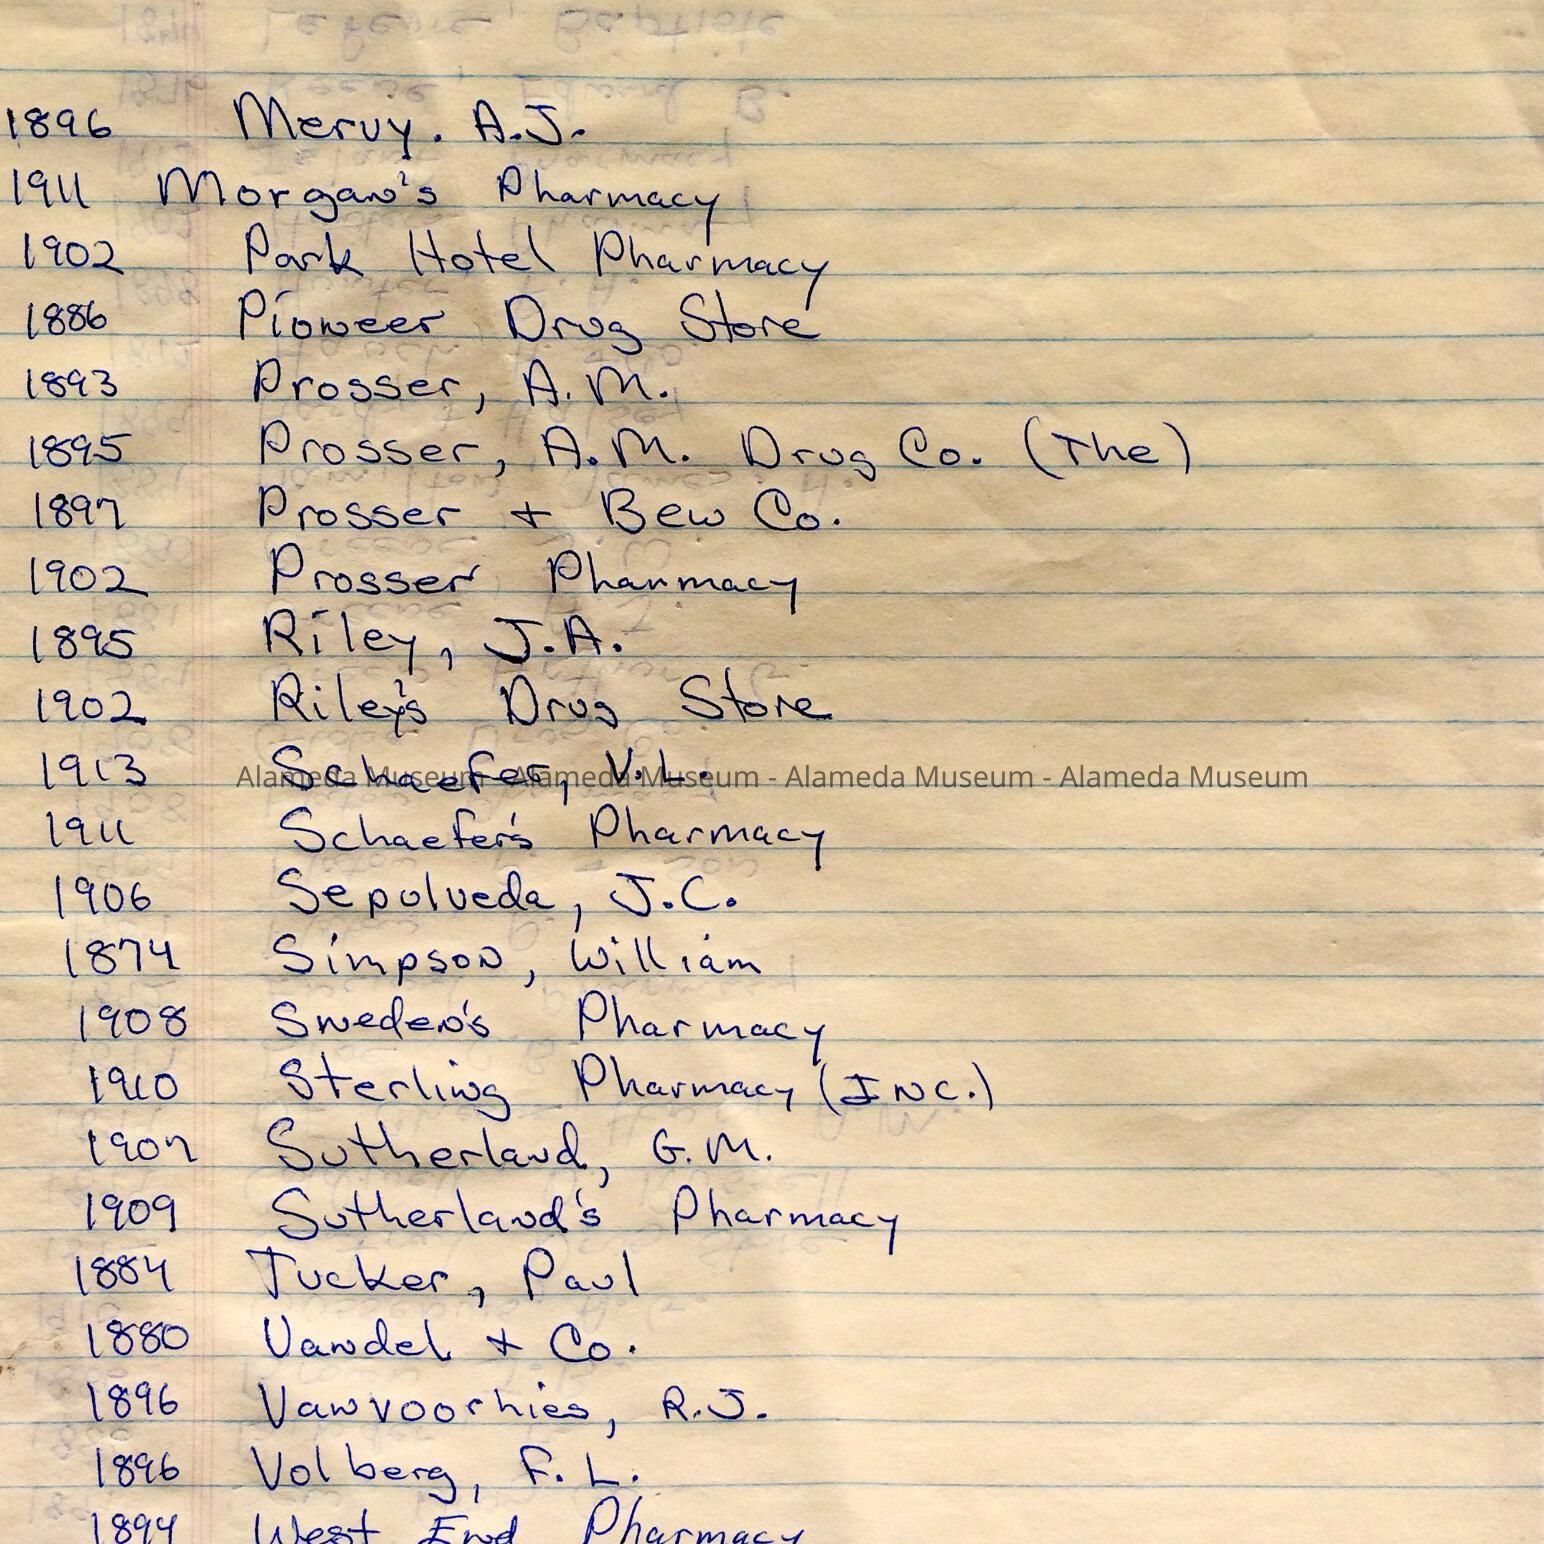 1896 Mervy. A.J.
1911 Morgan's Pharmacy
1902 Park Hotel Pharmacy
1886 Pioneer Drug Store
1893 Prosser, A.M.
1895 Prosser, A.M. Drug Co. (The)
1897 Prosser + Bew Co.
1902 Prosser Pharmacy
1895 Riley, J.A.
1902 Riley's Drug Store
1913 Schaefer, V.L.
Alameda Museum - Alameda Museum - Alameda Museum - Alameda Museum
1911 Schaefer's Pharmacy
1906 Sepulveda, J.C.
1874 Simpson, William
1908 Sweden's Pharmacy
1910 Sterling Pharmacy (INC.)
1907 Sutherland, G.M.
1909 Sutherland's Pharmacy
1884 Tucker, Paul
1880 Vandel + Co.
1896 Vanvoorhies, R.J.
1896 Volberg, F.L.
1894 West End Pharmacy